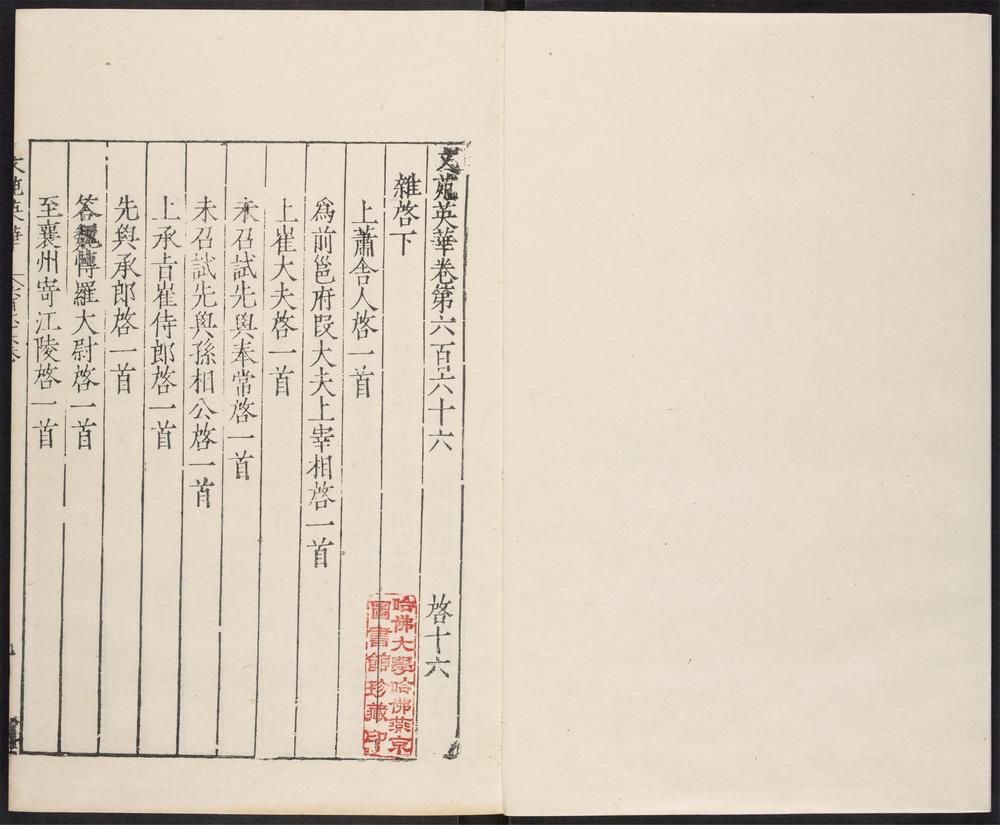 文苑英華卷第六百六十六 啓十六
雜啓下
上蕭舍人啓一首
爲前邕府段大夫上宰相啓一首
上崔大夫啓一首
未召試先與奉常啓一首
未召試先與孫相公啓一首
上承旨崔侍郎啓一首
先與承郎啓一首
答魏博羅大尉啓一首
至襄州寄江陵啓一首
哈佛大學哈佛燕京
圖書館珍藏印
文苑英華